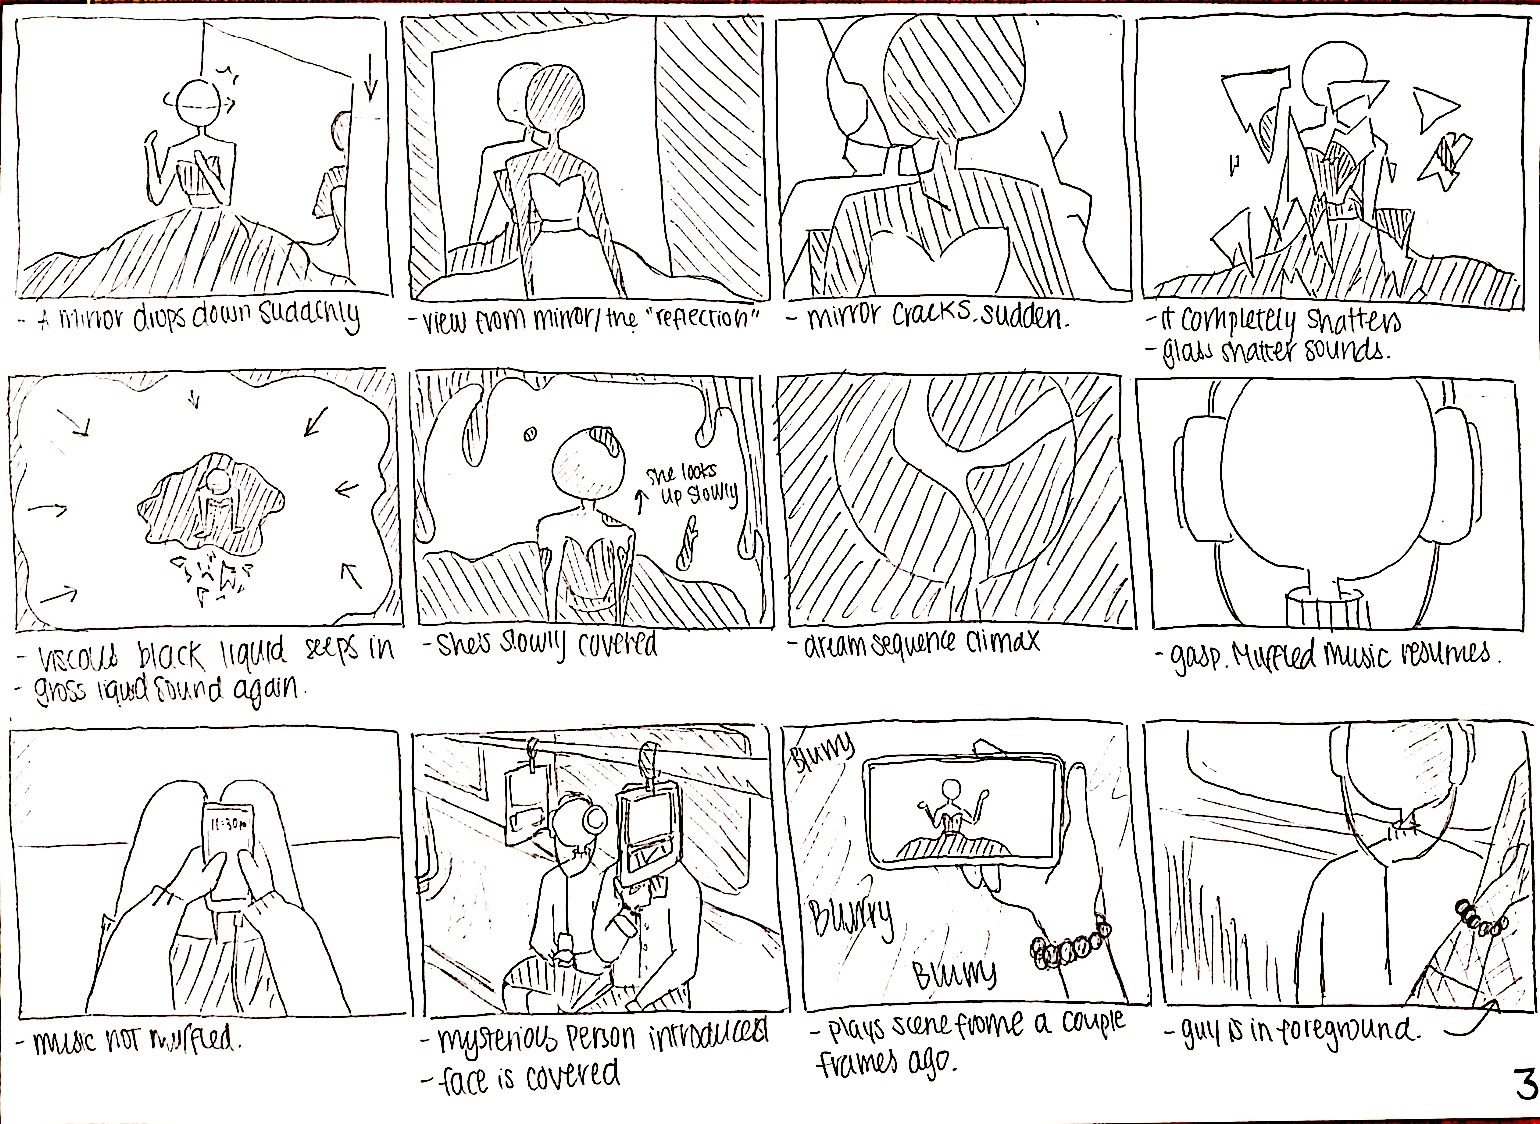 - A mirror drops down suddenly
- view from mirror/the "reflection"
- mirror cracks. sudden.
- it completely shatters
- glass shatter sounds.
she looks
up slowly
- viscous black liquid seeps in
- gross liquid sound again.
- she's slowly covered
- dream sequence climax
- gasp. Muffled music resumes.
11:30PM
Blurry
Blurry
Blurry
- music not muffled.
- mysterious person introduced
- face is covered
- plays scene frome a couple
frames ago.
- guy is in foreground.
3